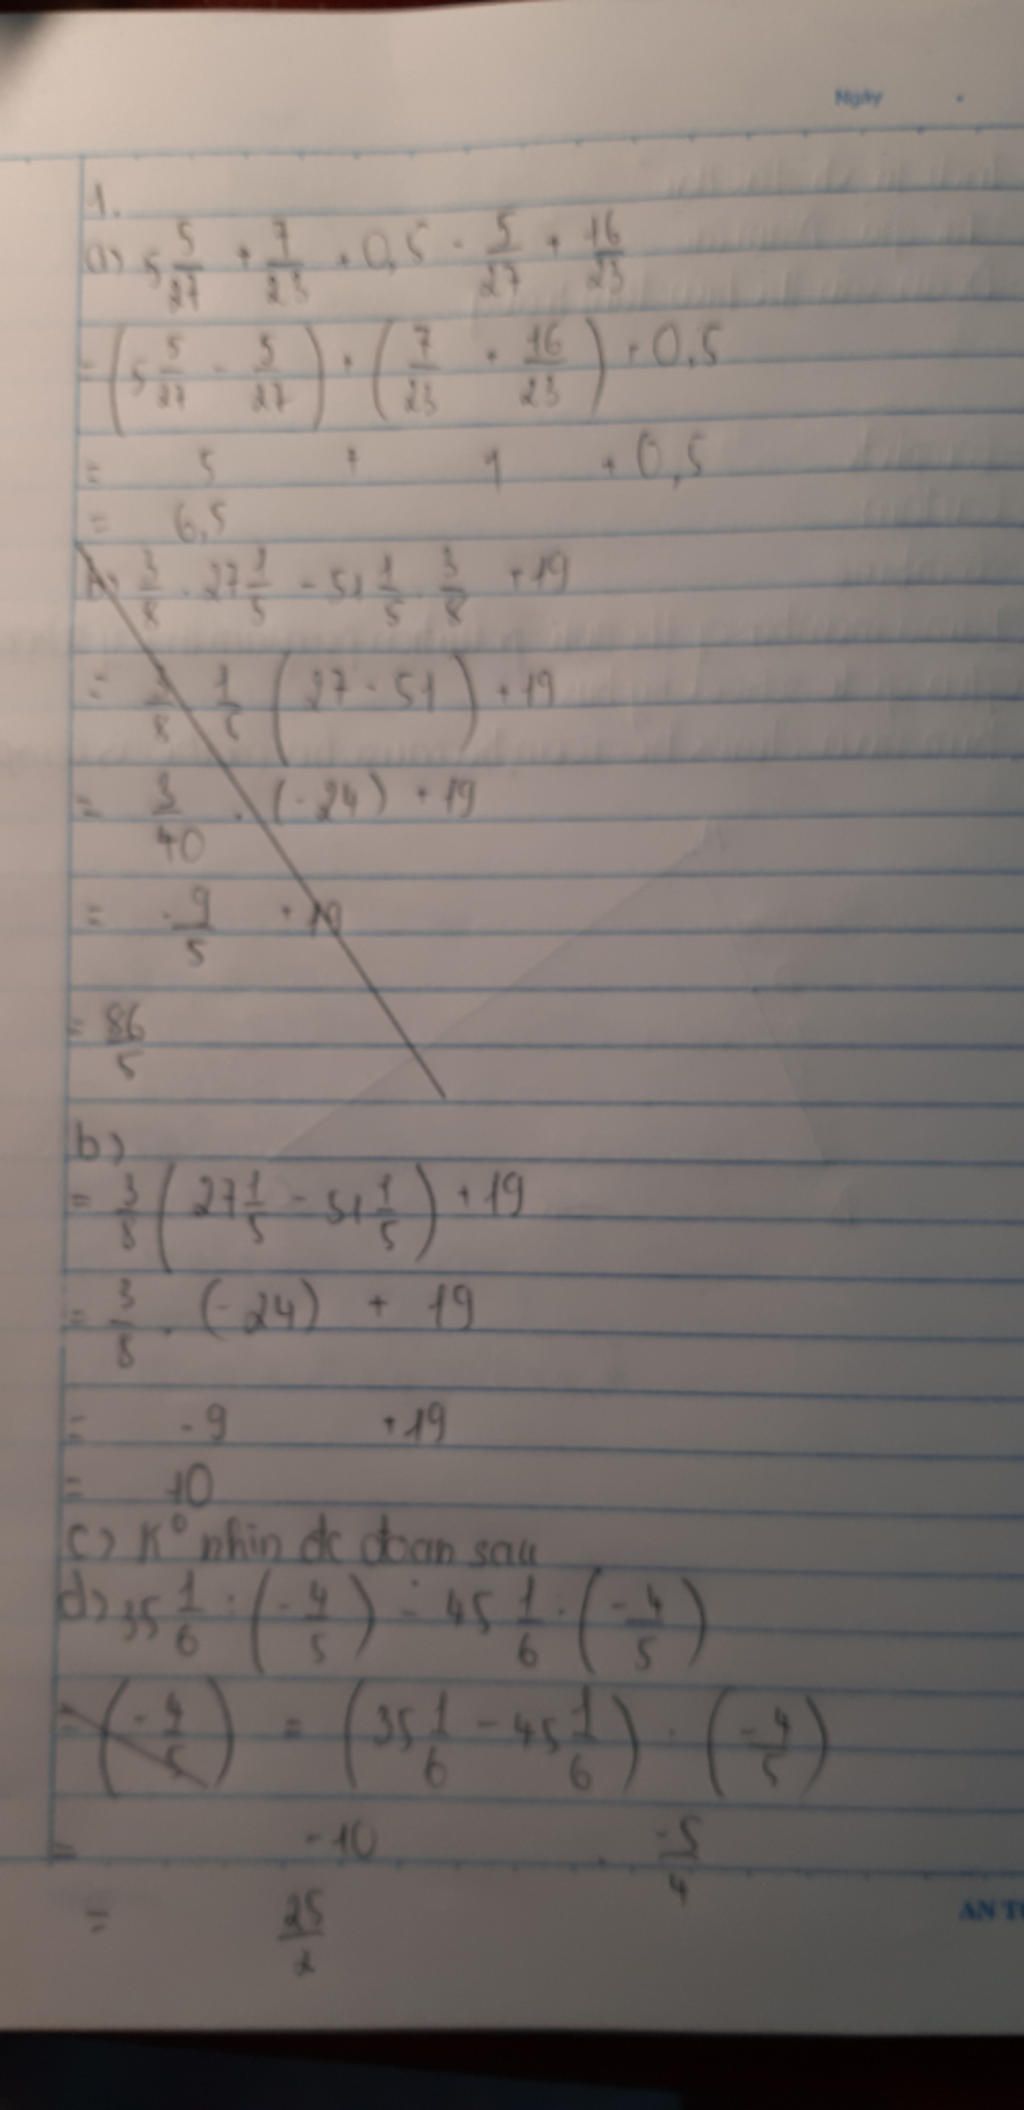 Ngày
1.
a) 5 5/27 + 7/23 + 0,5 - 5/27 + 16/23
= (5 5/27 - 5/27) + (7/23 + 16/23) + 0,5
= 5 + 1 + 0,5
= 6,5
b) 3/8 . 27 1/5 - 51 1/5 . 3/8 + 19
= 3/8 . 1/5 (27 - 51) + 19
= 3/40 . (-24) + 19
= -9/5 + 19
= 86/5
b)
= 3/8 (27 1/5 - 51 1/5) + 19
= 3/8 . (-24) + 19
= -9 + 19
= 10
c) K° nhìn đc đoạn sau
d) 35 1/6 : (-4/5) - 45 1/6 : (-4/5)
= (-4/5) = (35 1/6 - 45 1/6) : (-4/5)
= -10 . -5/4
= 25/2
AN T